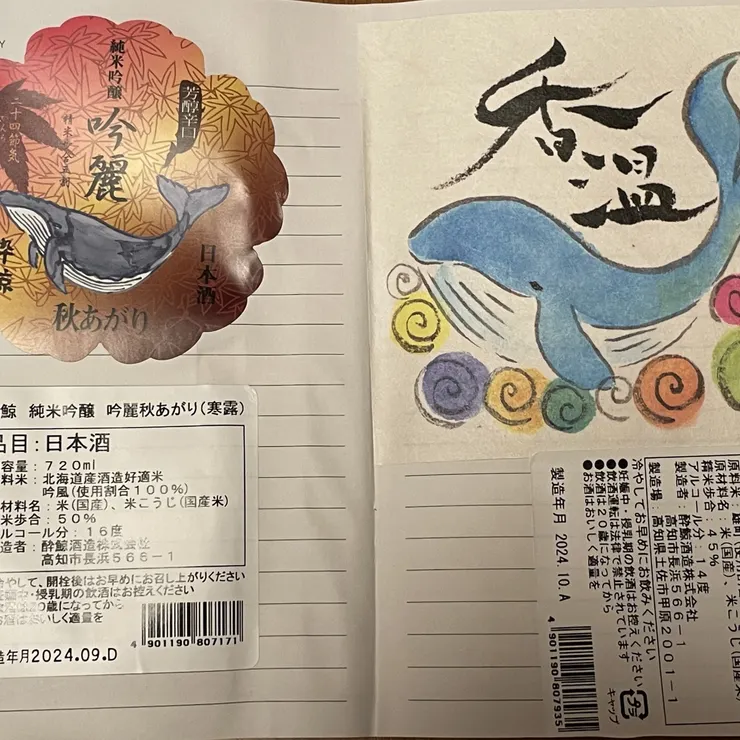 純米吟醸
吟麗
芳醇辛口
二十四節気
日本酒
酔鯨
秋あがり
鯨 純米吟醸 吟麗秋あがり(寒露)
品目:日本酒
容量:720ml
料米:北海道産酒造好適米
吟風(使用割合100%)
材料名:米(国産)、米こうじ(国産米)
米歩合:50%
ルコール分:16度
造者:酔鯨酒造株式会社
高知市長浜566-1
やして、開栓後はお早めにお召し上がりください
娠中・授乳期の飲酒はお控えください
0歳になってから
酒はおいしく適量を
4 901190 807171
造年月2024.09.D
香温
原材料名:米(国産)、米こうじ(国産米)
精米歩合:45%
アルコール分:14度
製造者:酔鯨酒造株式会社
高知市長浜566-1
製造場:高知県土佐市甲原2001-1
冷やしてお早めにお飲みください
●妊娠中・授乳期の飲酒はお控えください
●飲酒運転は法律で禁止されています
●飲酒は20歳になってから
●お酒はおいしく適量を
製造年月 2024.10.A
4 901190 807935
プラ
キャップ